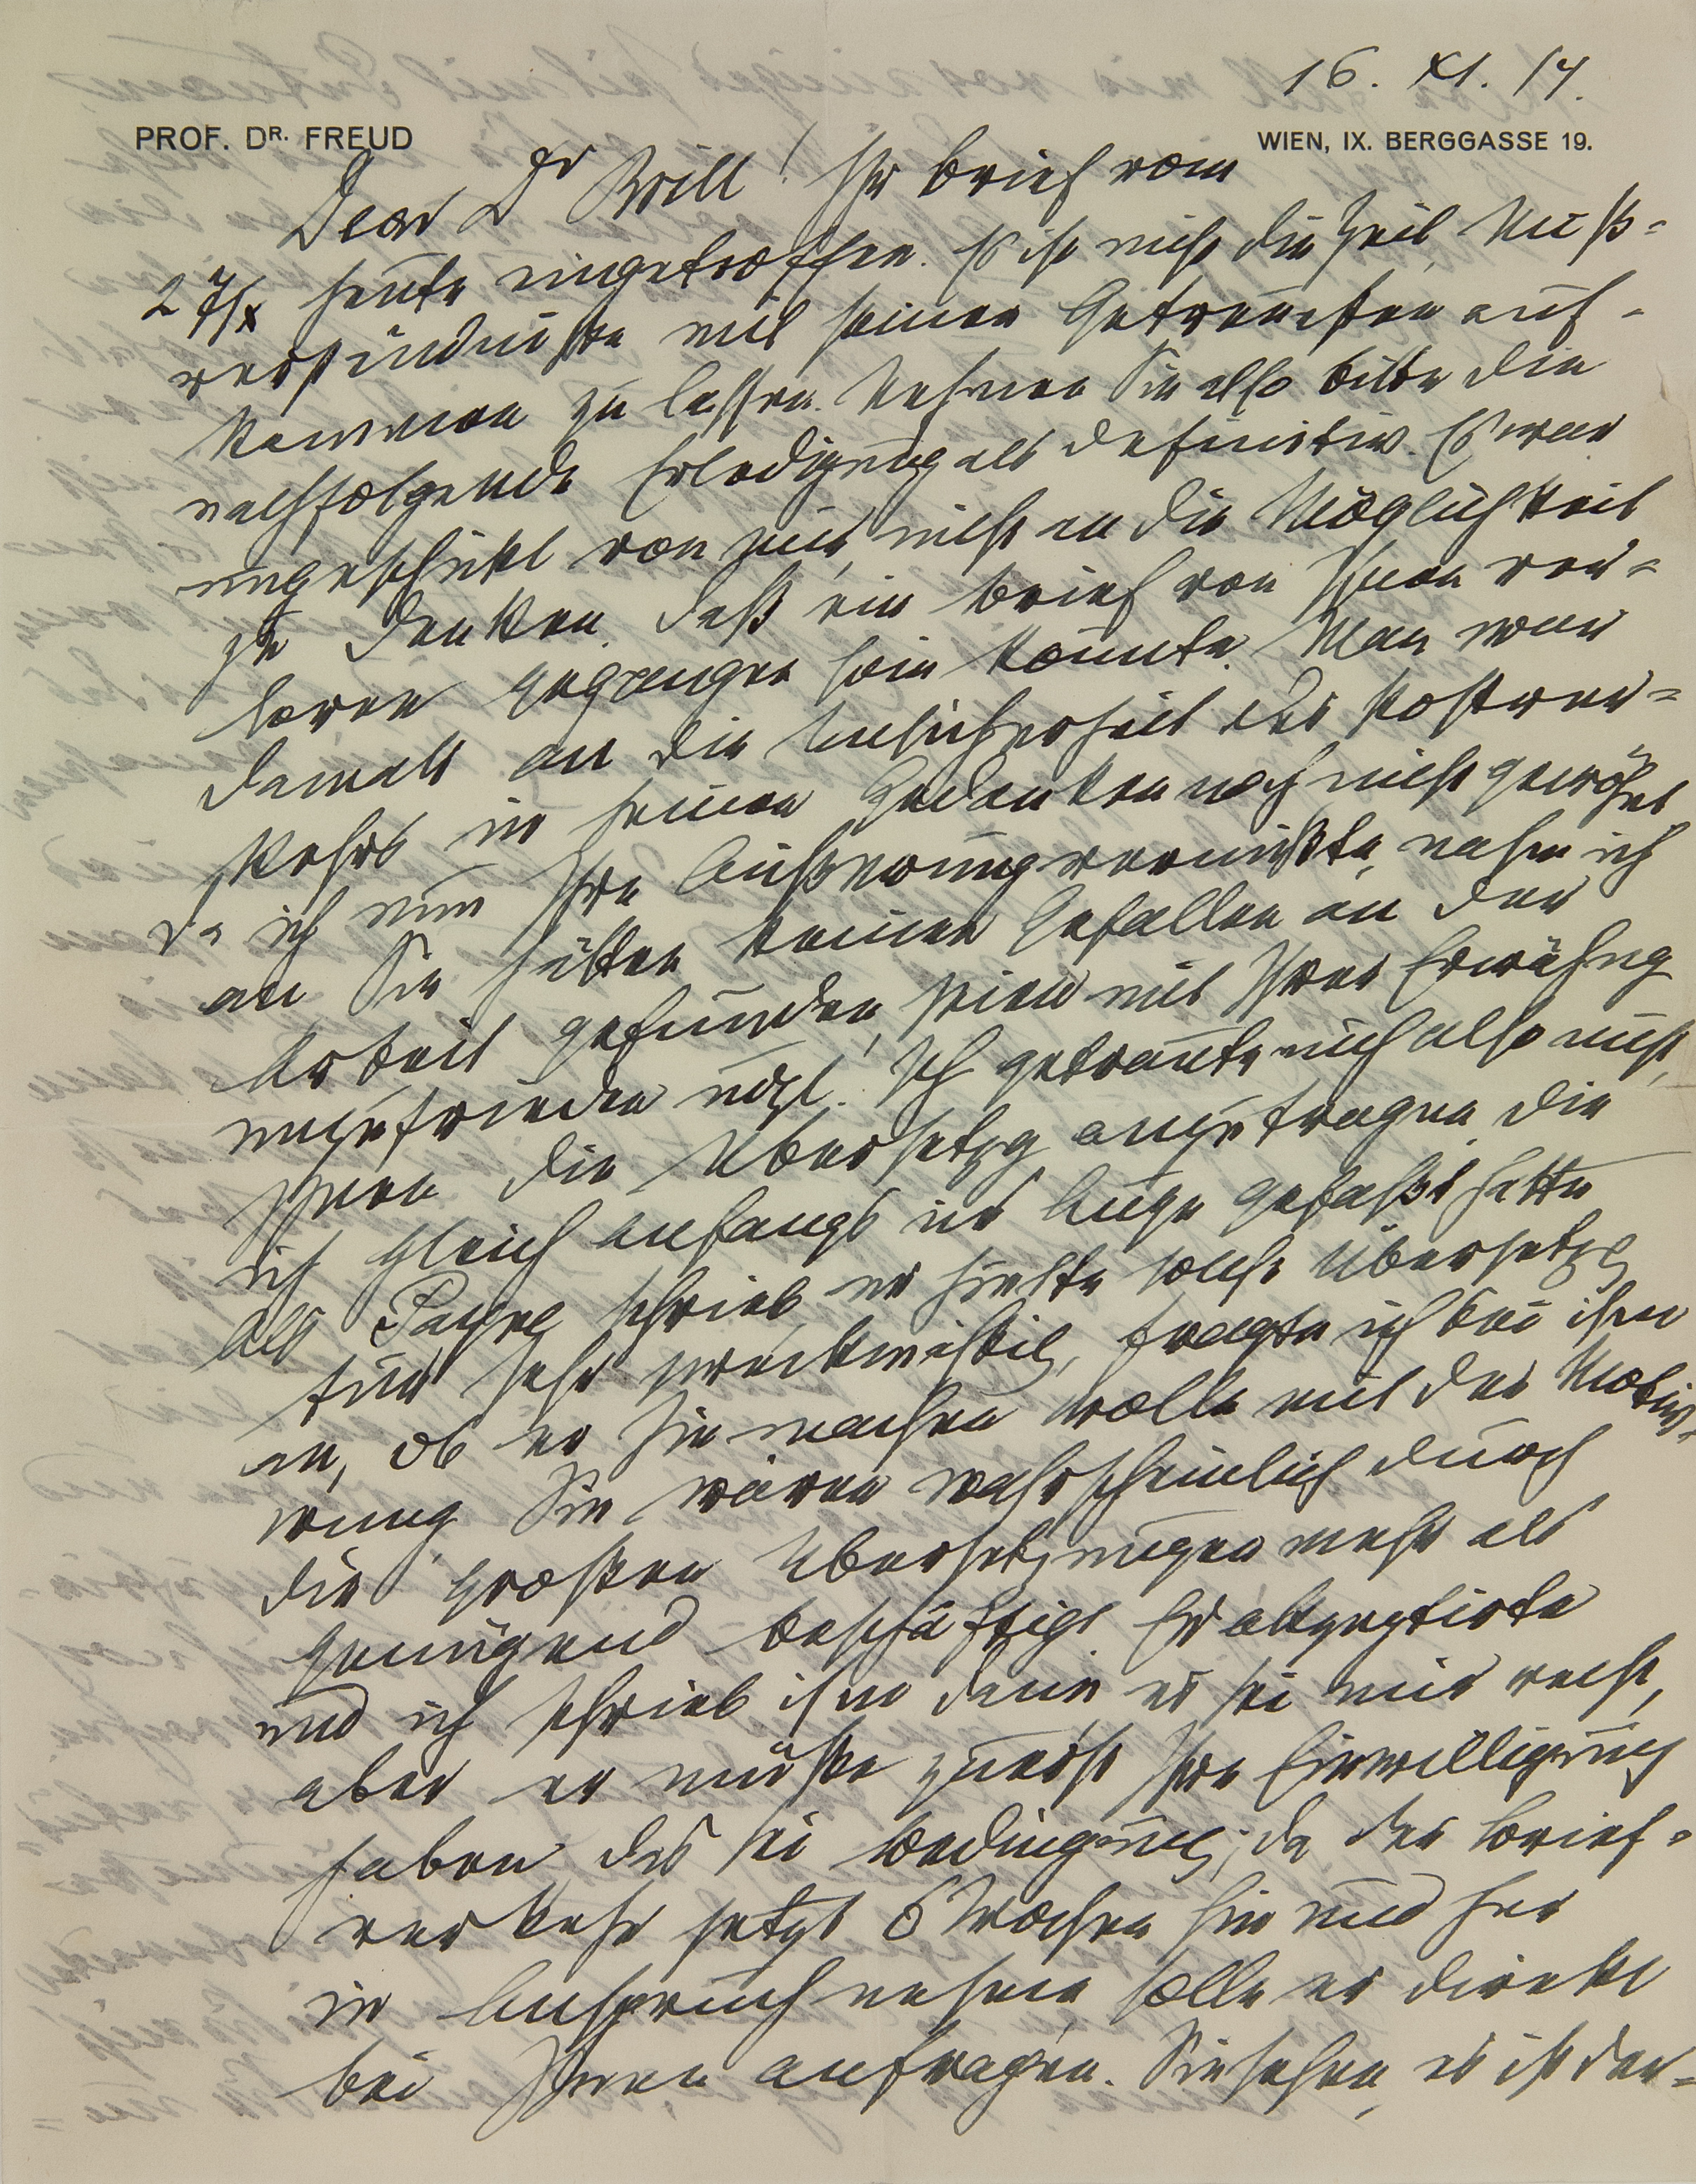 16. XI. 14.
PROF. DR. FREUD
WIEN, IX. BERGGASSE 19.
Dear Dr Brill! Ihr Brief vom
27/X heute eingetroffen. Es ist nicht die Zeit, Miß-
verständnisse mit seinen Getreuesten auf-
kommen zu lassen. Nehmen Sie also bitte die
nachfolgende Erledigung als definitiv. Es war
ungeschickt von mir, nicht an die Möglichkeit
zu denken, daß ein Brief von Ihnen ver-
loren gegangen sein könnte. Man war
damals an die Unsicherheit des Postver-
kehrs in seinen Gedanken noch nicht gewöhnt
Da ich nun Ihre Äußerung vermißte, nahm ich
an Sie hätten keinen Gefallen an der
Arbeit gefunden, seien mit Ihrer Erwähng
unzufrieden udgl. Ich getraute mich also nicht,
Ihnen die Übersetzg anzutragen, die
ich gleich anfangs ins Auge gefaßt hatte
Als Payne schrieb, er hielte solche Übersetzg
für sehr zweckmäßig, fragte ich bei ihm
an, ob er sie machen wolle mit der Motivi-
rung, Sie wären wahrscheinlich durch
die großen Übersetzungen mehr als
genügend beschäftigt. Er akzeptirte
und ich schrieb ihm dann, es sei mir recht,
aber er müßte zuerst Ihre Einwilligung
haben, das sei Bedingung; da der Brief-
verkehr jetzt 6 Wochen hin und her
in Anspruch nehme, solle er direkt
bei Ihnen anfragen. Sie sehen, es ist der-